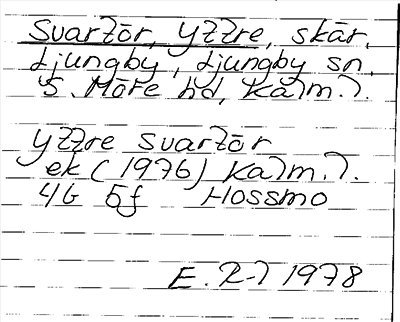 Svartör, Yttre, skär,
Ljungby, Ljungby sn,
S. Möre hd, Kalm. l.
Yttre Svartör
ek (1976) Kalm. l.
4G 5f Hossmo
E. R-l 1978